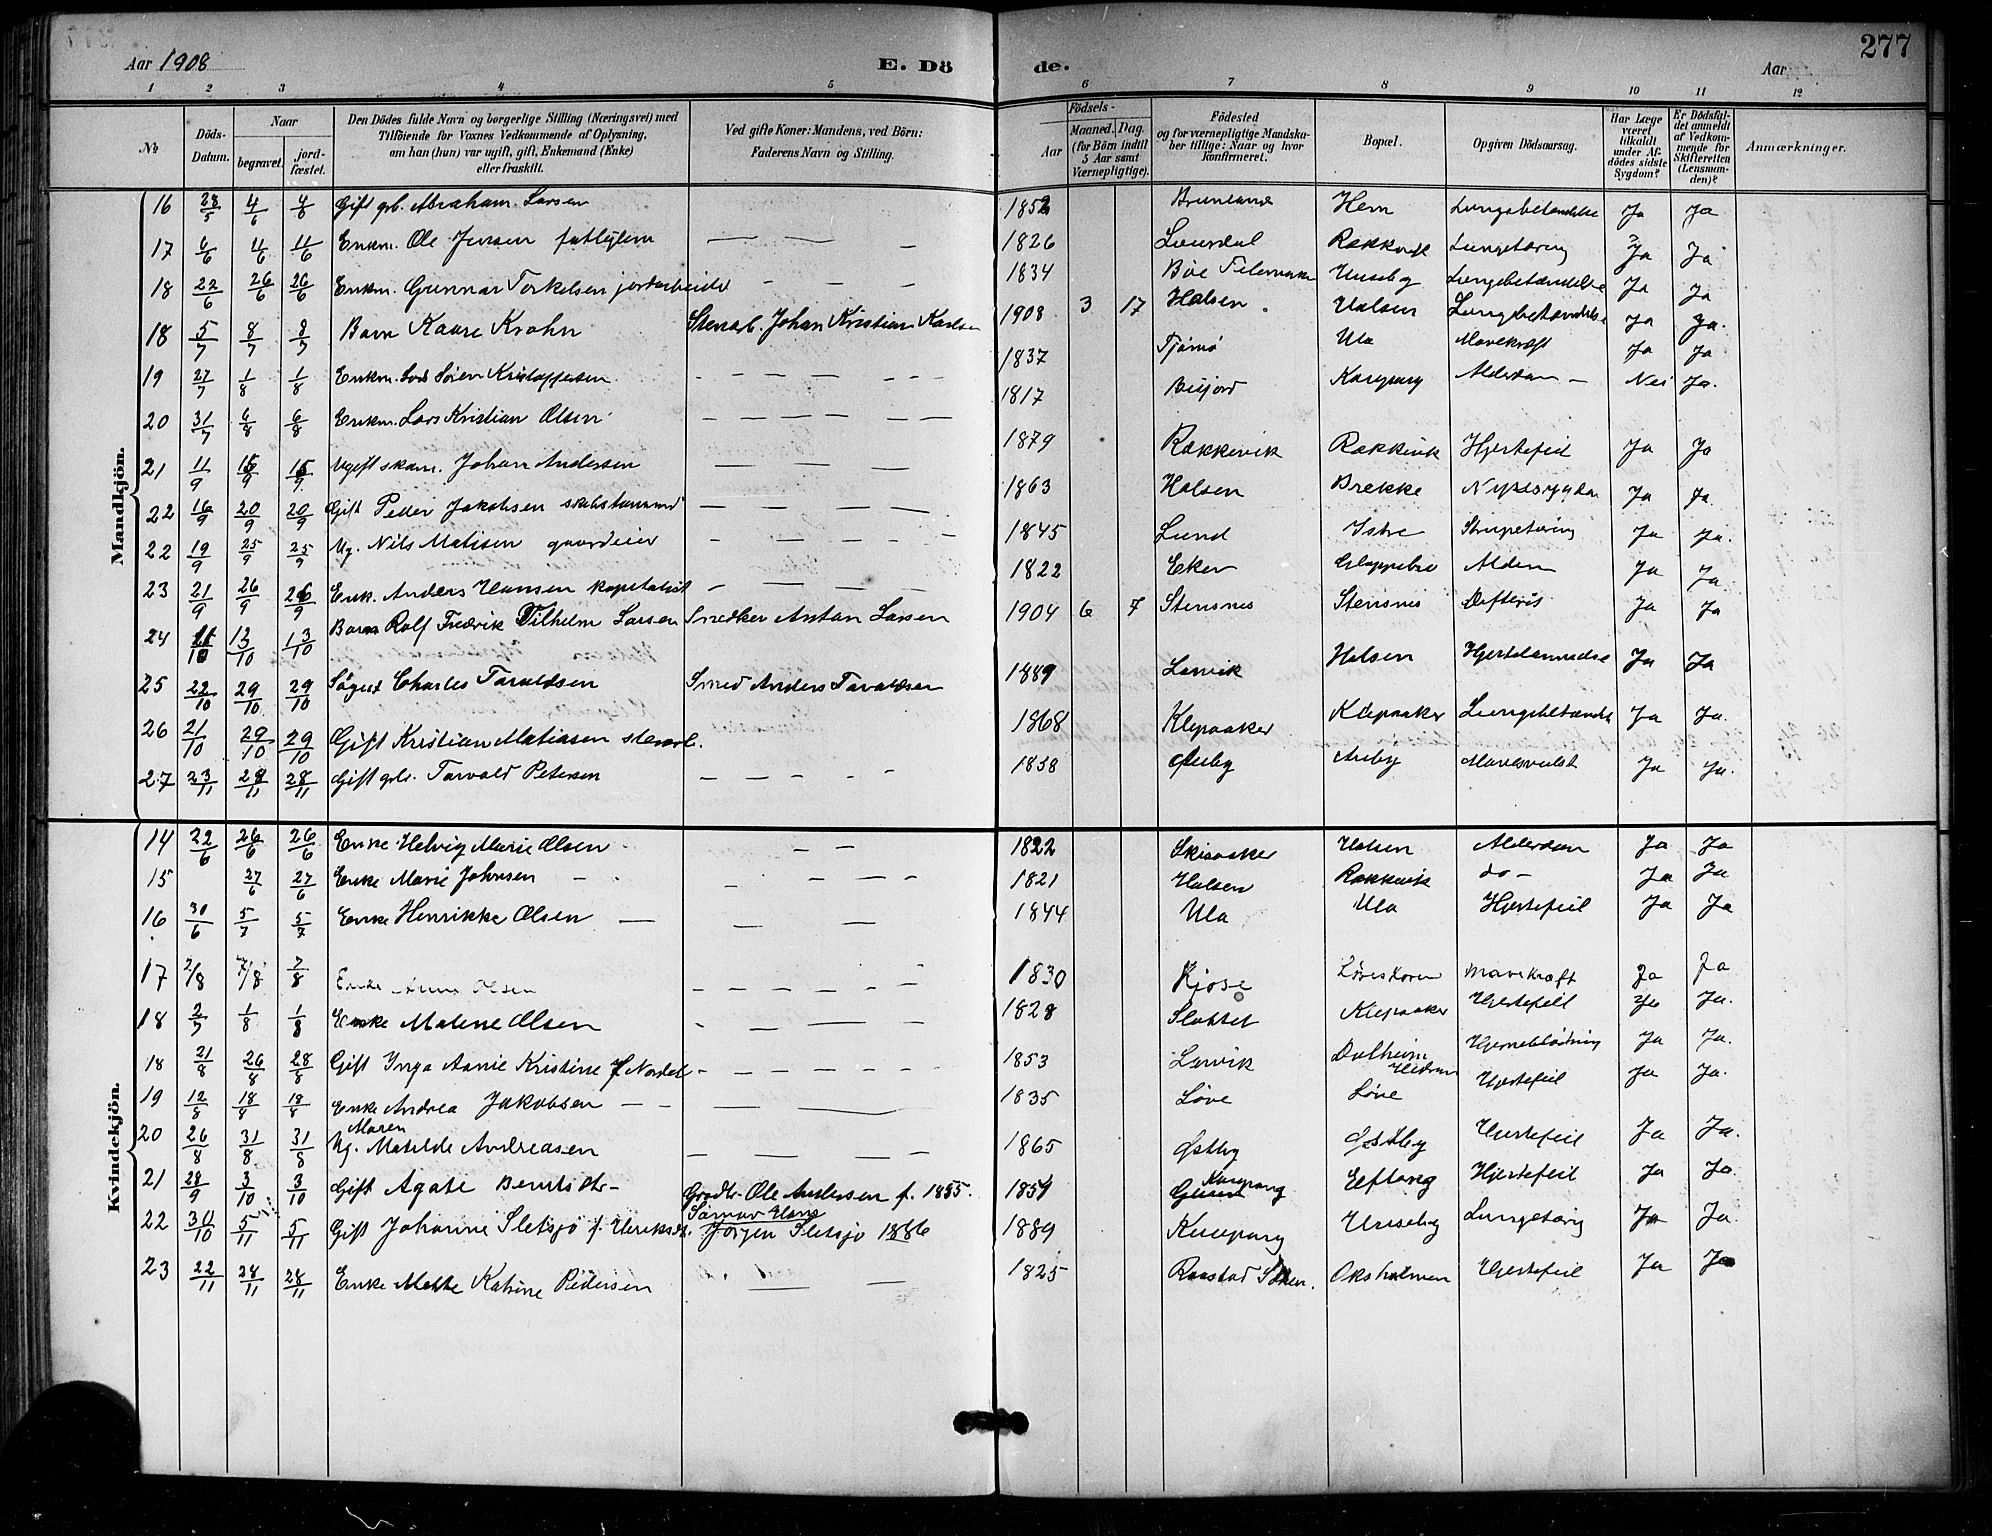 Aar 1908
E. Dö
de.
Aar
277
1 2 3 4 5 6 7 8 9 10 11 12
№
Döds-Datum.
Naar
begravet.
jord-fæstet.
Den Dödes fulde Navn og borgerlige Stilling (Næringsvei) med
Tilföiende for Voxnes Vedkommende af Oplysning,
om han (hun) var ugift, gift, Enkemand (Enke)
eller fraskilt.
Ved gifte Koner: Mandens, ved Börn:
Faderens Navn og Stilling.
Födsels-
Aar
Maaned.
Dag.
(for Börn indtil
5 Aar samt
Værnepligtige).
Födested
og for værnepligtige Mandska-
ber tillige: Naar og hvor
konfirmeret.
Bopæl.
Opgiven Dödsaarsag.
Har Læge
været
tilkaldt
under Af-
dödes sidste
Sygdom?
Er Dödsfal-
det anmeldt
af Vedkom-
mende for
Skifteretten
(Lensman-
den)?
Anmærkninger.
Mandkjön.
16 28/5 4/6 4/6 Gift grb. Abraham Larsen 1852 Brunlanes Hem Lungebetændelse Ja Ja
17 6/6 11/6 11/6 Enkm. Ole Jensen fattiglem 1826 Rækkevik Lungetæring Ja Ja
18 22/6 26/6 26/6 Enkm. Gunnar Torkelsen jordarbeider 1834 Böe Telemarken Huseby Lungebetændelse Ja Ja
18 5/7 8/7 8/7 Barn Kaare Krohn Stenarb. Johan Kristian Karlsen 1908 3 17 Halsen Halsen Lungebetændelse Ja Ja.
19 27/7 1/8 1/8 Enkm. Sören Kristoffersen 1837 Tjömö Ula Mavekræft Ja Ja
20 31/7 6/8 6/8 Enkm. Lars Kristian Olsen 1817 Kaupang Alderdom Nei Ja.
21 11/9 15/9 15/9 Ugift skom. Johan Andersen 1879 Rækkevik Rækkevik Hjertefeil Ja Ja
22 16/9 20/9 20/9 Gift Peder Jakobsen skibstömmerm 1863 Halsen Brekke Nyresygdom Ja Ja.
22 19/9 25/9 25/9 Ug. Nils Matisen gaardeier 1845 Lund Istre Strupetæring Ja Ja.
23 21/9 26/9 26/9 Enk. Anders Hansen kapitalist 1822 Eker Gloppebro Alderdom Ja Ja.
24 11/10 13/10 13/10 Barn Rolf Fredrik Vilhelm Larsen Snedker Anton Larsen 1904 6 7 Stensnes Stensnes Difteris Ja Ja
25 22/10 29/10 29/10 Sögut Charles Taraldsen Smed Anders Taraldsen 1889 Larvik Halsen Hjertelammelse Ja Ja
26 21/10 29/10 29/10 Gift Kristian Matiasen stenarb. 1868 Klepaaker Klepaaker Lungebetændelse Ja Ja.
27 23/11 28/11 28/11 Gift grb. Torvald Petersen 1858 Auby Auby Mavesvulst Ja Ja.
Kvindekjön.
14 22/6 26/6 26/6 Enke Helvig Marie Olsen 1822 Skisaaker Halsen Alderdom Ja Ja
15 27/6 27/6 Enke Marie Johnsen 1821 Halsen Rækkevik do- Ja Ja
16 30/6 5/7 5/7 Enke Henrikke Olsen 1844 Ula Ula Hjertefeil Ja Ja
17 2/8 7/8 7/8 Enke Anne Olsen 1830 Kjose Mavekræft Ja Ja
18 2/7 1/8 1/8 Enke Malene Olsen 1828 Slottet Klepaaker Hjertefeil Ja Ja.
18 21/8 26/8 28/8 Gift Inga Annie Kristine J Nordal 1853 Larvik Dalheim Hedrum Hjerneblödning Ja Ja.
19 12/8 18/8 18/8 Enke Andrea Jakobsen 1835 Löve Löve Hjertefeil Ja Ja.
20 26/8 31/8 31/8 Ug. Maren Matilde Andreasen 1865 Östby Östby Hjertefeil Ja Ja.
21 28/9 3/10 3/10 Gift Agate Berntsdtr- Grdbr. Ole Andersen f. 1855. 1859 Kaupang Eftang Hjertefeil Ja Ja.
22 30/10 5/11 5/11 Gift Johanne Sletsjö f. Henriksdt. Sömand Hans Jörgen Sletsjö 1886 1889 Kaupang Huseby Lungetæring Ja Ja.
23 22/11 28/11 28/11 Enke Mette Katrine Pedersen 1825 Raastad Skien. Oksholmen Hjertefeil Ja Ja